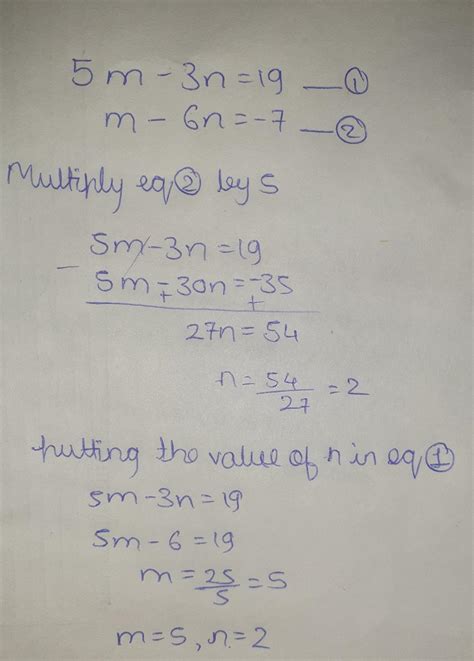 5m - 3n = 19 — ①
m - 6n = -7 — ②
Multiply eq ② by 5
5m - 3n = 19
- 5m - 30n = -35
+ +
27n = 54
n = 54/27 = 2
putting the value of n in eq ①
5m - 3n = 19
5m - 6 = 19
m = 25/5 = 5
m = 5, n = 2